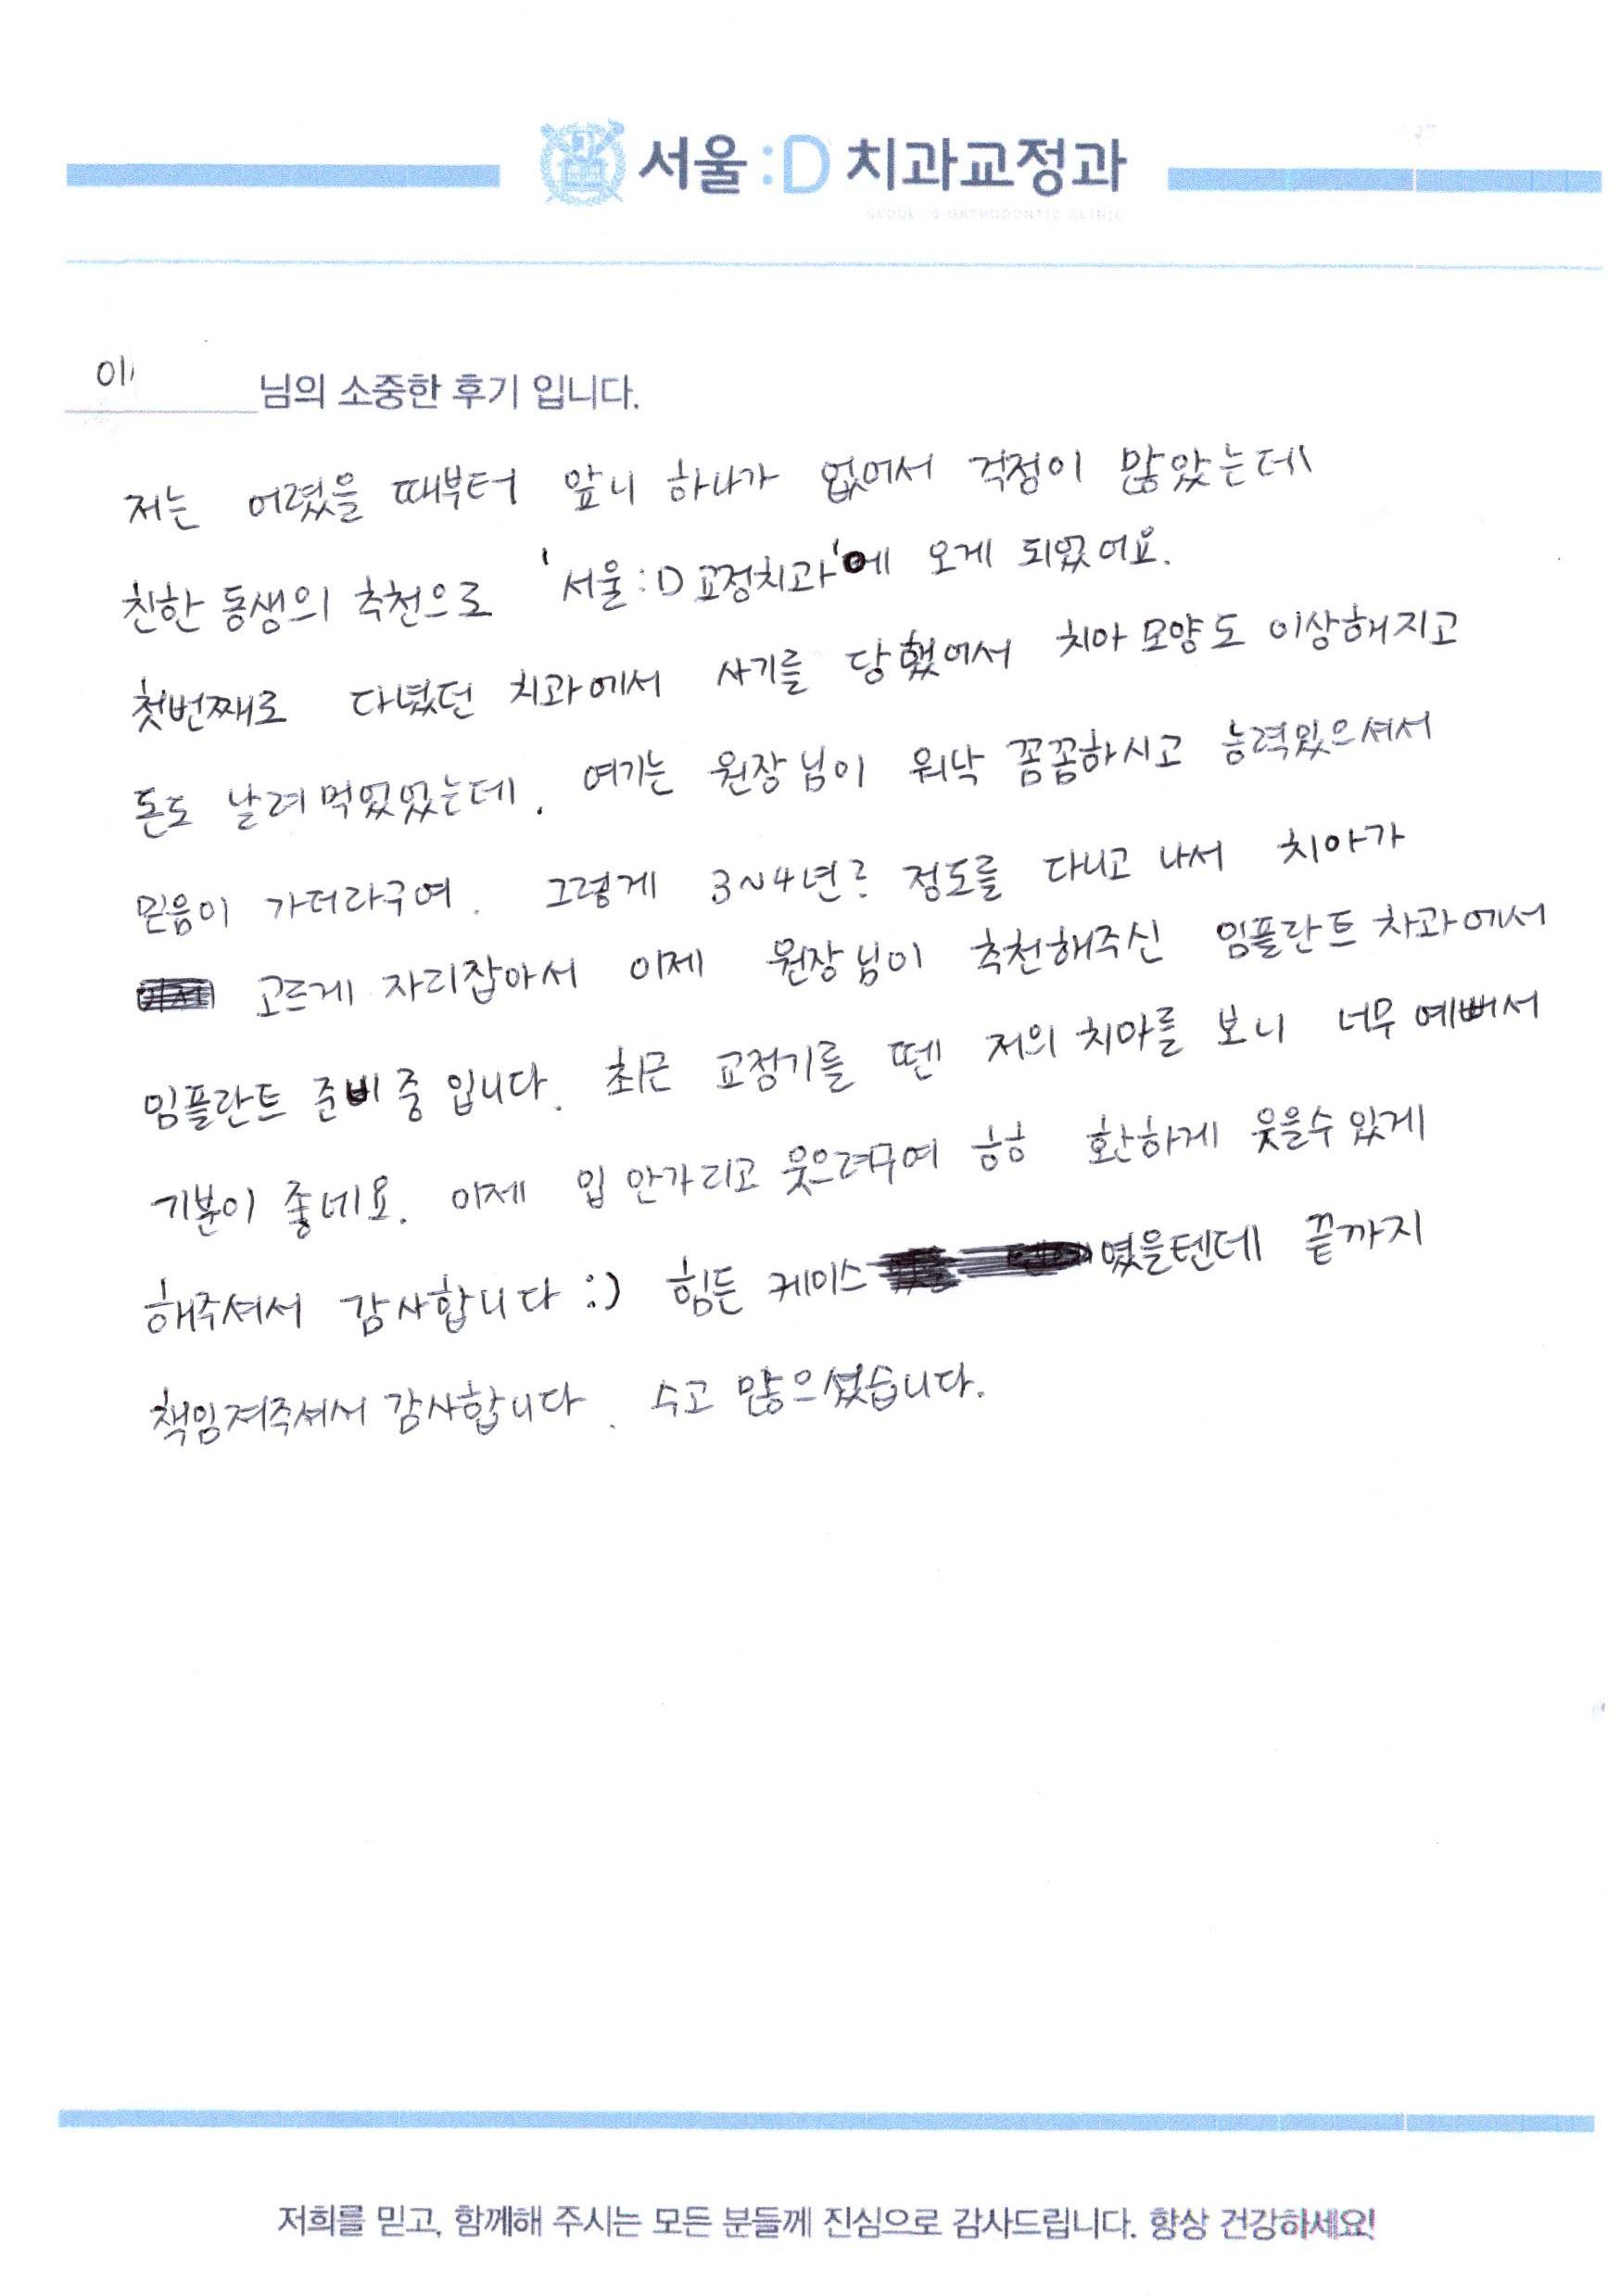 서울:D 치과교정과
SEOUL :D ORTHODONTIC CLINIC
이
님의 소중한 후기 입니다.
저는 어렸을 때부터 앞니 하나가 없어서 걱정이 많았는데
친한 동생의 추천으로 '서울:D교정치과'에 오게 되었어요.
첫번째로 다녔던 치과에서 사기를 당했어서 치아 모양도 이상해지고
돈도 날려먹었었는데. 여기는 원장님이 워낙 꼼꼼하시고 능력있으셔서
믿음이 가더라구여. 그렇게 3~4년? 정도를 다니고 나서 치아가
고르게 자리잡아서 이제 원장님이 추천해주신 임플란트 차과에서
임플란트 준비중 입니다. 최근 교정기를 뗀 저의 치아를 보니 너무 예뻐서
기분이 좋네요. 이제 입 안가리고 웃으려구여 ㅎㅎ 환하게 웃을수 있게
해주셔서 감사합니다 :) 힘든 케이스였을텐데 끝까지
책임져주셔서 감사합니다. 수고 많으셨습니다.
저희를 믿고, 함께해 주시는 모든 분들께 진심으로 감사드립니다. 항상 건강하세요!